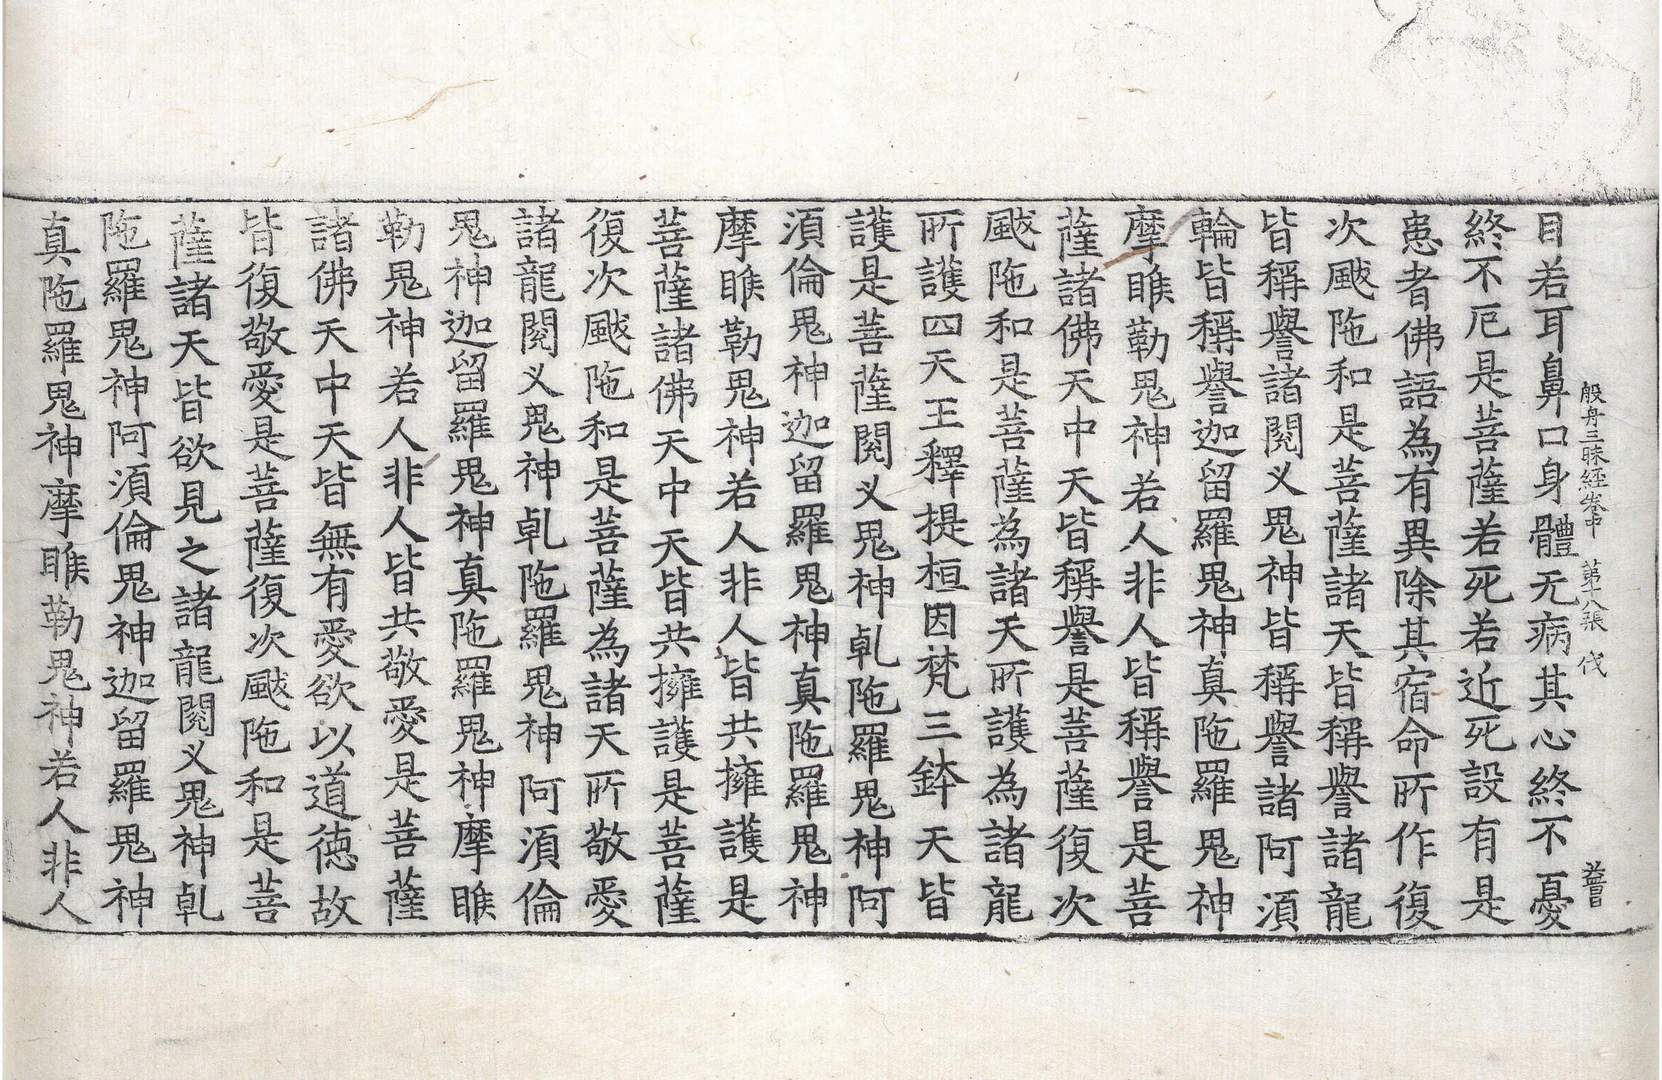 般舟三昧経卷中 第十八張 伐
目若耳鼻口身體无病其心終不憂
終不厄是菩薩若死若近死設有是
患者佛語為有異除其宿命所作復
次颰陁和是菩薩諸天皆稱譽諸龍
皆稱譽諸閱叉鬼神皆稱譽諸阿須
輪皆稱譽迦留羅鬼神真陁羅鬼神
摩睺勒鬼神若人非人皆稱譽是菩
薩諸佛天中天皆稱譽是菩薩復次
颰陁和是菩薩為諸天所護為諸龍
所護四天王釋提桓因梵三鉢天皆
護是菩薩閱叉鬼神乹陁羅鬼神阿
須倫鬼神迦留羅鬼神真陁羅鬼神
摩睺勒鬼神若人非人皆共擁護是
菩薩諸佛天中天皆共擁護是菩薩
復次颰陁和是菩薩為諸天所敬愛
諸龍閱叉鬼神乹陁羅鬼神阿須倫
鬼神迦留羅鬼神真陁羅鬼神摩睺
勒鬼神若人非人皆共敬愛是菩薩
諸佛天中天皆無有愛欲以道德故
皆復敬愛是菩薩復次颰陁和是菩
薩諸天皆欲見之諸龍閱叉鬼神乹
陁羅鬼神阿須倫鬼神迦留羅鬼神
真陁羅鬼神摩睺勒鬼神若人非人